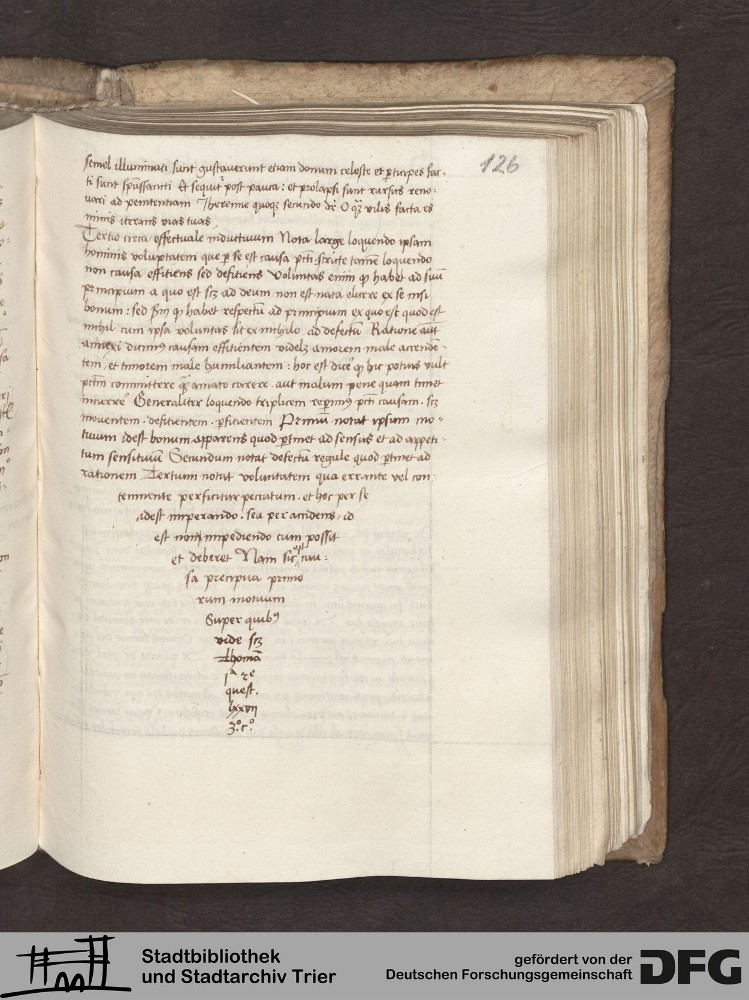 126
semel illuminati sunt gustaverunt etiam donum celeste et pticipes fac-
ti sunt spussancti Et sequit' post pauca: et prolapsi sunt rursus reno-
vari ad penitentiam Iheremie quoqz secundo dr O qz vilis facta es
nimis iterans vias tuas
Tertio circa effectuale inductiuum Nota large loquendo ipsam
hominis voluptatem que p se est causa pcti: stricte tamē loquendo
non causa efficiens sed deficiens Voluntas enim qz habet ad suū
principium a quo est scz ad deum non est nata elicere ex se nisi
bonum: sed sm qz habet respectū ad principium ex quo est quod est
nichil cum ipsa voluntas sit ex nichilo ad defectū Ratione aūt
annexi dicimus causam efficientem videlz amorem male accenden-
tem et timorem male humiliantem: hoc est dicē qz hic potius vult
pctm committere qz amato carere aut malum pene quam timet
incurrē Generaliter loquendo triplicem reperimus pcti causam scz
moventem deficientem pficientem Primū notat ipsum mo-
tiuum idest bonum apparens quod ptinet ad sensus et ad appeti-
tum sensitiuū Secundum notat defectū regule quod ptinet ad
rationem Tertium notat voluntatem qua errante vel con-
temnente perficitur peccatum et hoc per se
idest imperando seu per accidens id
est non impediendo cum possit
et deberet Nam sic est cau-
sa precipua primo
rum motuum
Super quibus
vide scz
Thomā
1ᵃ 2ᵉ
quest.
lxxvii
3.º c.º
Stadtbibliothek
und Stadtarchiv Trier
gefördert von der
Deutschen Forschungsgemeinschaft
DFG